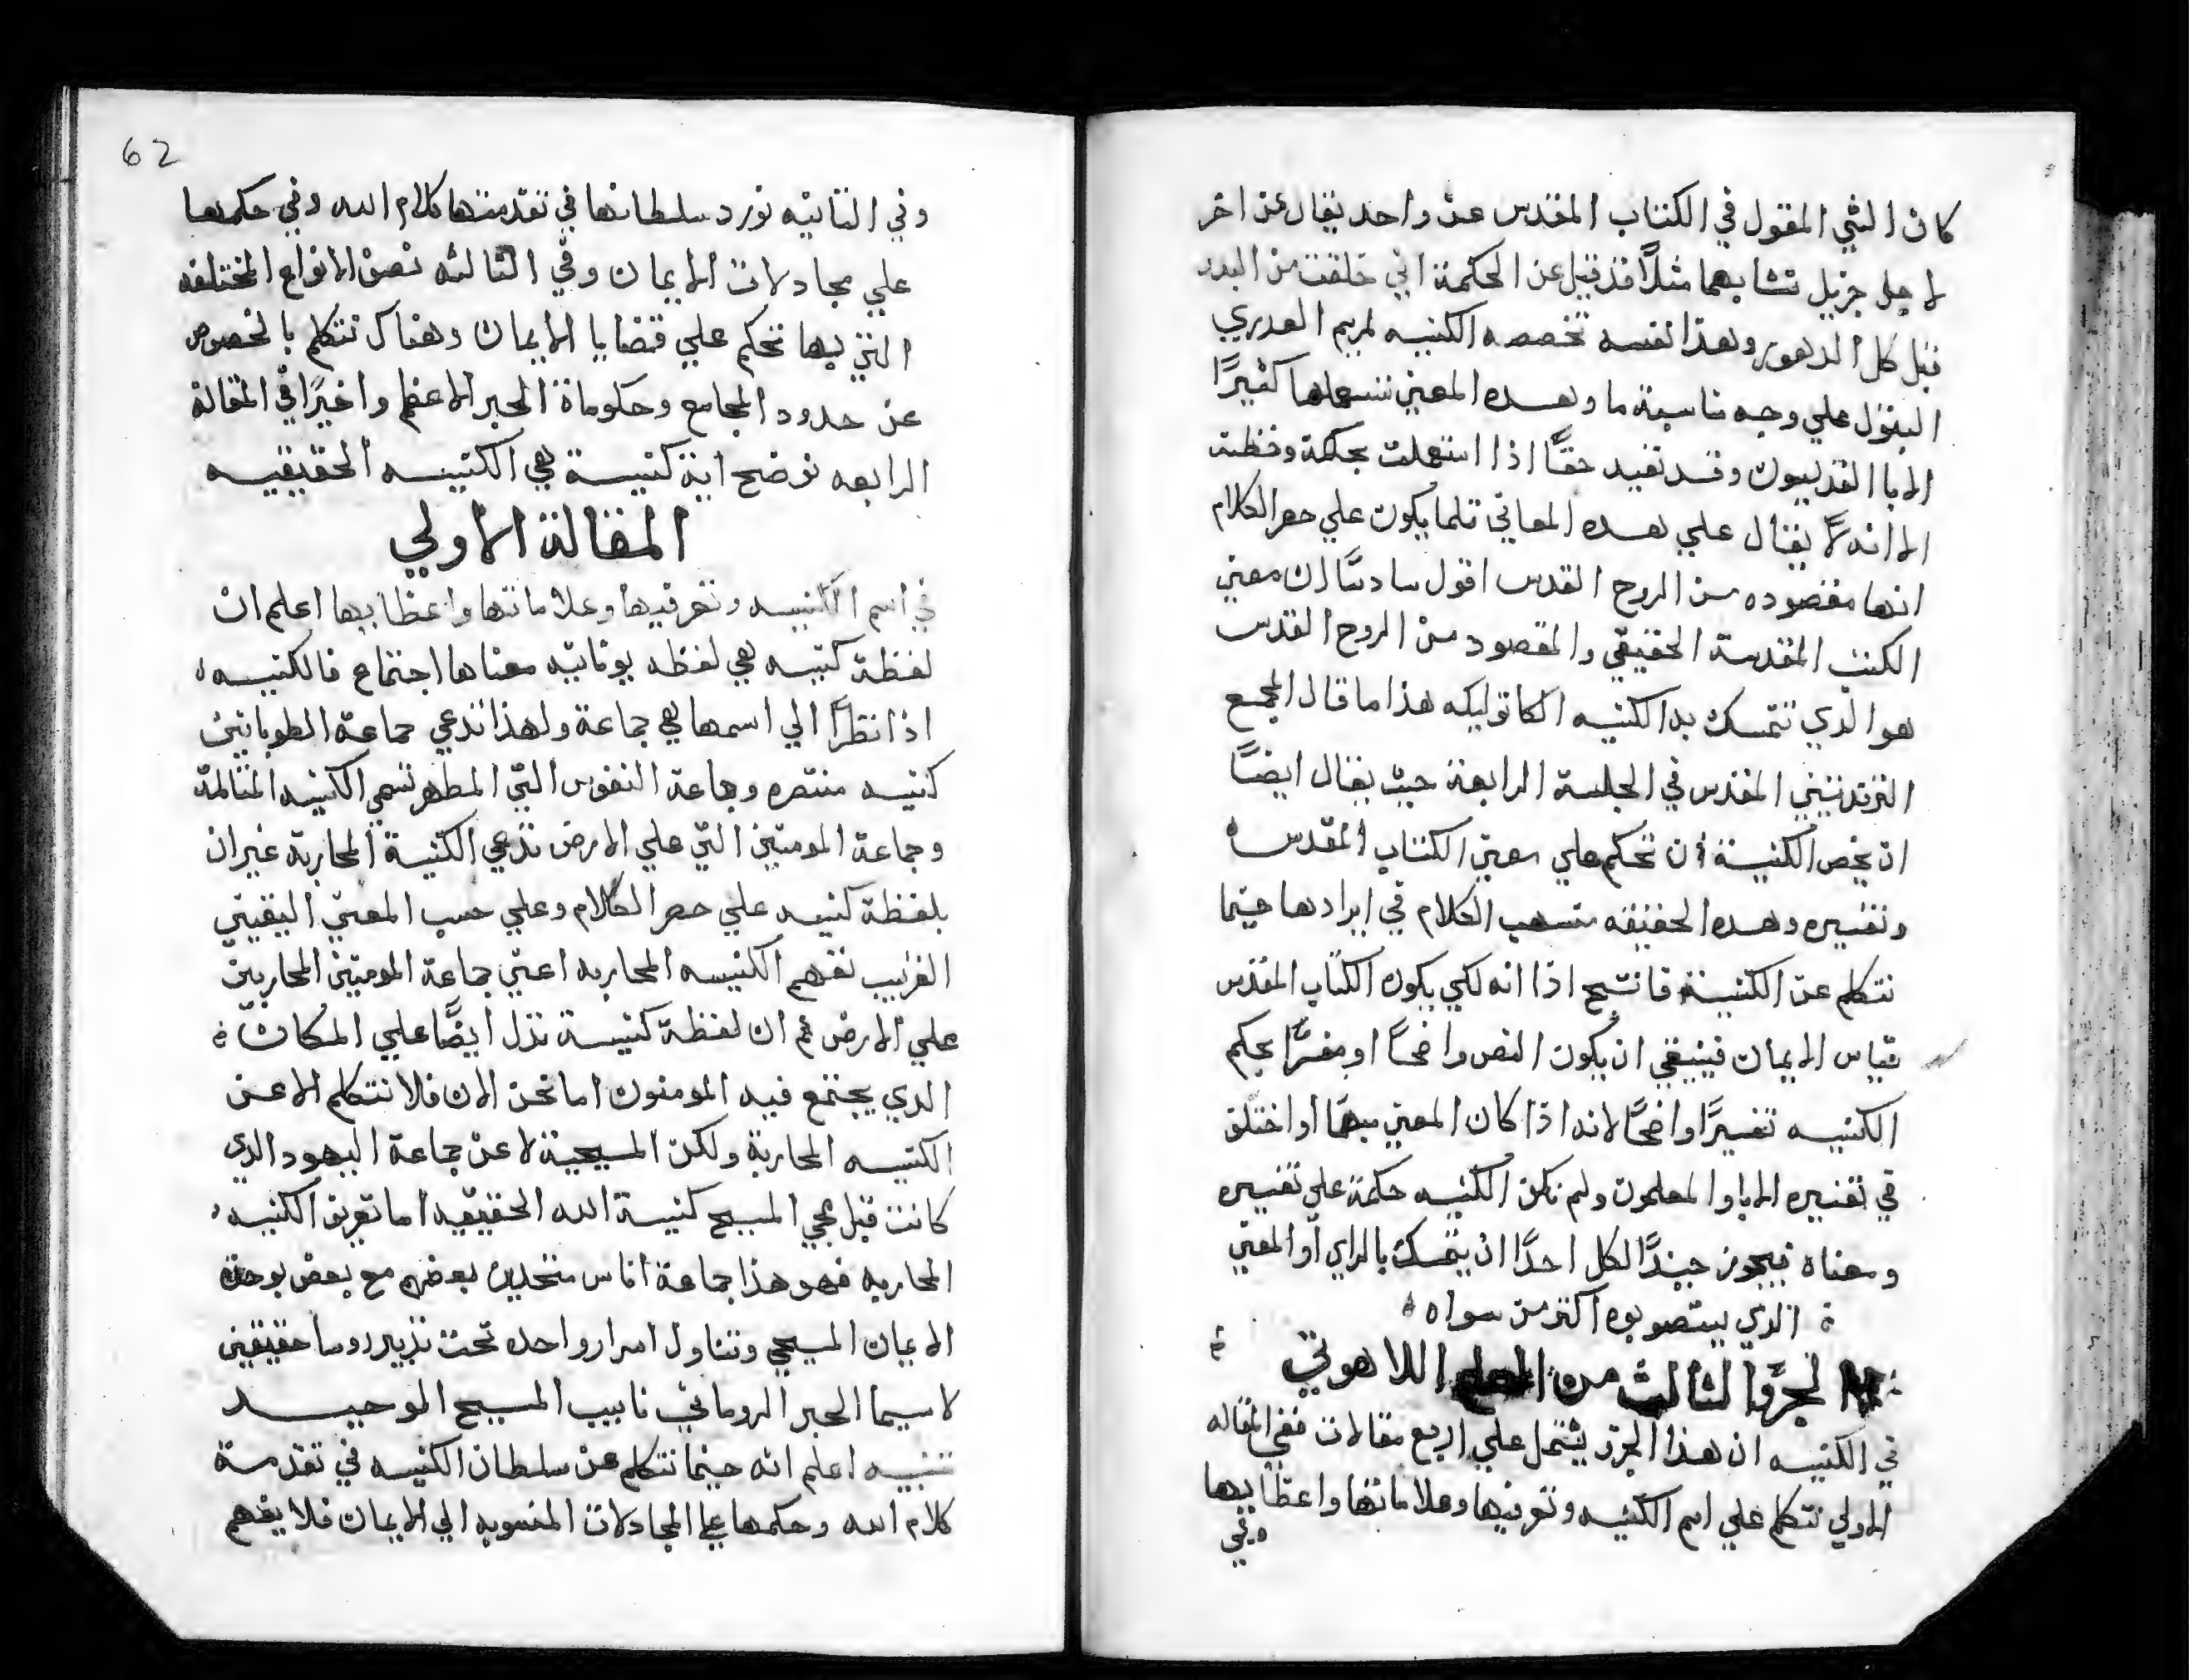 كان الشي المقول في الكتاب المقدس عن واحد يقال عن اخر
لاجل جزيل تشابهما مثلًا قد قيل عن الحكمة اني خلقت من البدو
قبل كل الدهور وهذا نفسه تخصصه الكنيسه لمريم العدري
البتول علي وجه مناسبة ما وهذه المعني تستعملها كثيرًا
الابا القديسون وقد تفيد حقًا اذا استعملت بحكمة وفطنة
الا انه لا يقال علي هذه المعاني قلما يكون علي حصر الكلام
انها مقصوده من الروح القدس اقول سادسًا ان معني
الكتب المقدسة الحقيقي والمقصود من الروح القدس
هو الذي تتمسك به الكنيسه الكاتوليكه هذا ما قال المجمع
التريدنتيني المقدس في الجلسة الرابعة حيث يقال ايضًا
ان يخص الكنيسة ان تحكم علي معني الكتاب المقدس
وتفسيره وهذه الحقيقه متسهب الكلام في ايرادها حيثما
نتكلم عن الكنيسة فانتج اذا انه لكي يكون الكتاب المقدس
قياس الايمان فينبغي ان يكون النص واضحًا او مفسرًا بحكم
الكنيسه تفسيرًا واضحًا لانه اذا كان المعني مبهمًا او اختلف
في تفسيره الابا والمعلمون ولم تكن الكنيسه حكمة علي تفسيره
ومعناه فيجوز حينيدًا لكل احدًا ان يتمسك بالراي او المعني
الذي يستصوبوه اكتر من سواه
الجزو الثالث من العلم اللاهوتي
في الكنيسه ان هذا الجزو يشتمل علي اربع مقالات ففي المقاله
الاولي نتكلم علي اسم الكنيسه وتعريفها وعلاماتها واعظايها
وفي
62
وفي الثانيه نورد سلطانها في تقدمتها كلام الله وفي حكمها
علي مجادلات الايمان وفي الثالثه نصف الانواع المختلفه
التي بها تحكم علي قضايا الايمان وهناك نتكلم بالخصوص
عن حدود المجامع وحكوماة الحبر الاعظم واخيرًا في المقالة
الرابعه نوضح اية كنيسة هي الكنيسه الحقيقيه
المقالة الاولي
في اسم الكنيسه وتعرفيها وعلاماتها واعظايها اعلم ان
لفظة كنيسه هي لفظه يونانيه معناها اجتماع فالكنيسه
اذا نظرًا الي اسمها هي جماعة ولهذا تدعي جماعة الطوبانيين
كنيسه منتصره وجماعة النفوس التي المطهر تسمي الكنيسه المتالمة
وجماعة المومنين التي علي الارض تدعي الكنيسة المحاربة غير ان
بلفظة كنيسه علي حصر الكلام وعلي حسب المعني اليقيني
القريب نفهم الكنيسه المحاربه اعني جماعة المومنين المحاربين
علي الارض ثم ان لفظة كنيسة تدل ايضًا علي المكان
الدي يجتمع فيه المومنون اما نحن الان فلا نتكلم الا عن
الكنيسه المحاربة ولكن المسيحية لا عن جماعة اليهود الدي
كانت قبل مجي المسيح كنيسة الله الحقيقيه اما تعريف الكنيسه
المحاربه فهو هذا جماعة اناس متحدين بعضهم مع بعض بوحدة
الايمان المسيحي وتناول اسرار واحده تحت تدبير روسا حقيقيين
لاسيما الحبر الروماني نايب المسيح الوحيد
تنبيه اعلم انه حيثما نتكلم عن سلطان الكنيسه في تقدمة
كلام الله وحكمها علي المجادلات المنسوبه الي الايمان فلا يفهم